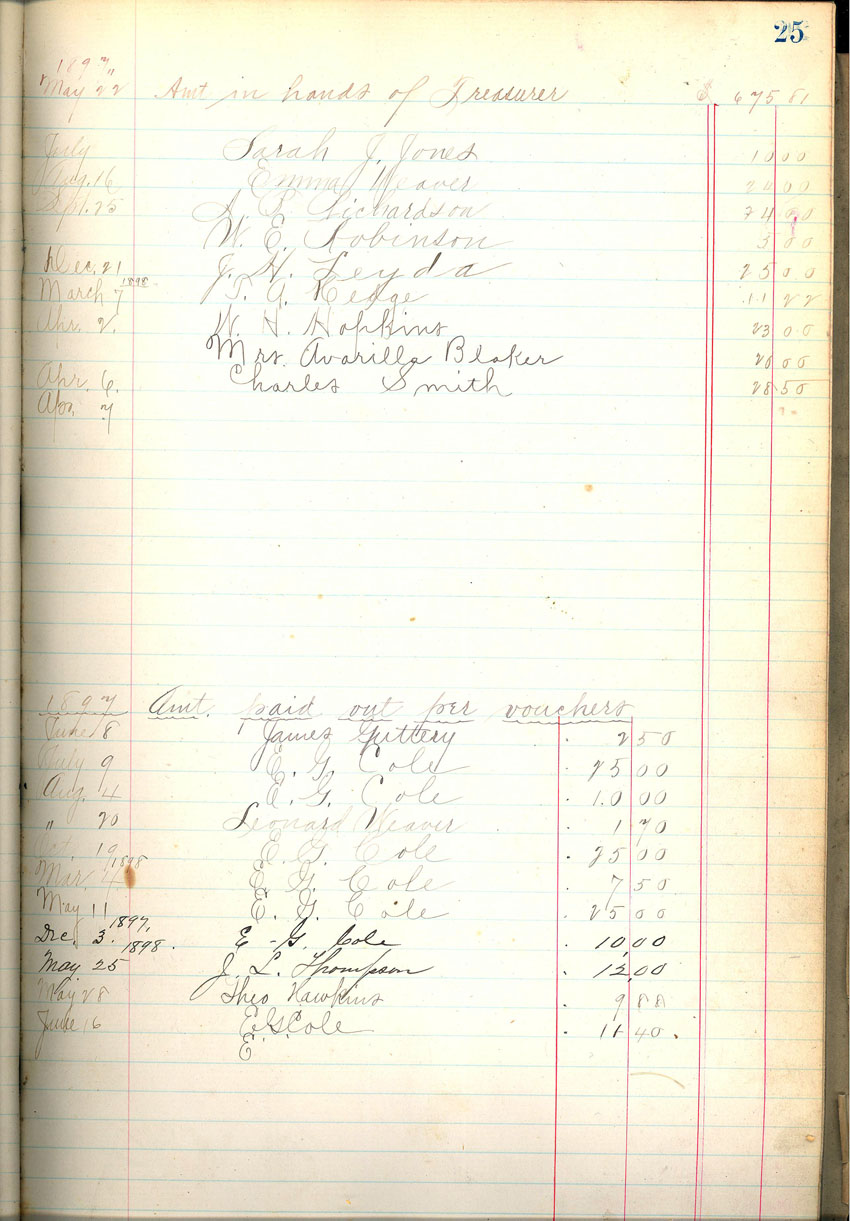 25
1897
May 22 Amt in hands of Treasurer $ 675 81
July Sarah J. Jones 10 00
Aug. 16 Emma Weaver 24 00
Spt. 25 Richardson 24 00
W. E. Robinson 5 00
Dec. 21 J. H. Leyda 25 00
March 7 1898 11 22
Apr. 2. W. H. Hopkins 23 00
Mrs. Avarilla Blaker 20 00
Apr. 6. Charles Smith 28 50
Apr. 7
1897 Amt. paid out per vouchers
June 8 James Guttery 2 50
July 9 E. G. Cole 25 00
Aug. 4 E. G. Cole 10 00
" 20 Leonard Weaver 1 70
Oct. 19 E. G. Cole 25 00
1898
Mar. 4 E. G. Cole 7 50
May 11 E. G. Cole 25 00
1897.
Dec. 3. E. G. Cole 10 00
1898.
May 25 J. L. Thompson 00
May 28 Theo Hawkins 9 88
June 16 E G Cole 11 40.
E